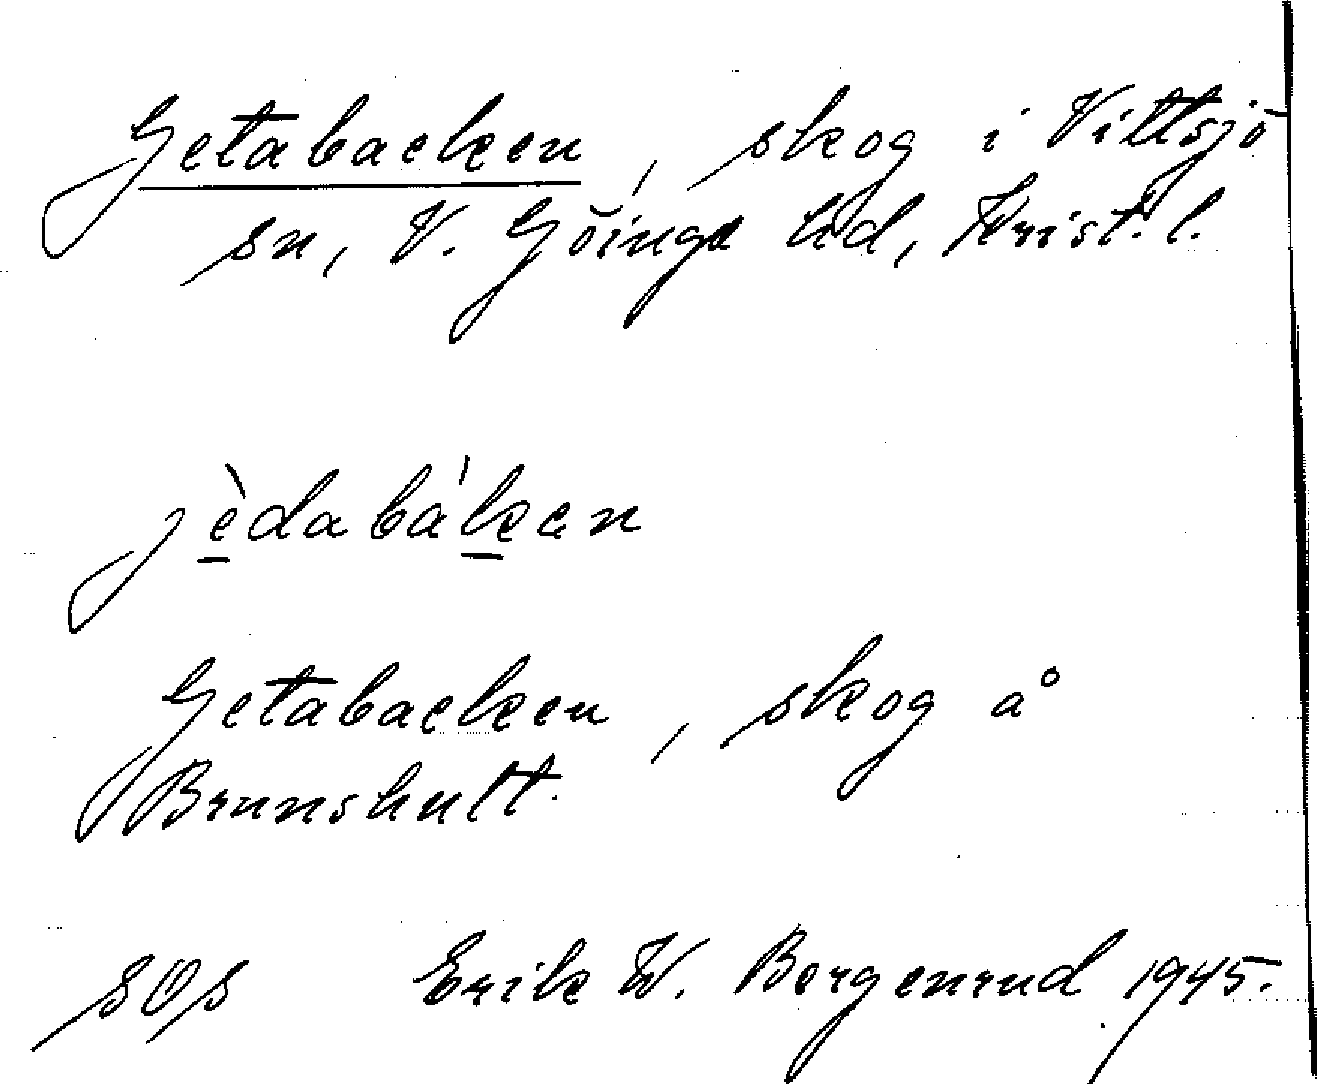 Getabacken, skog i Vittsjö
sn, V. Göinge hd, Krist. l.
jèdabáken
Getabacken, skog å
Brunshult.
SOS Erik W. Borgenrud 1945.